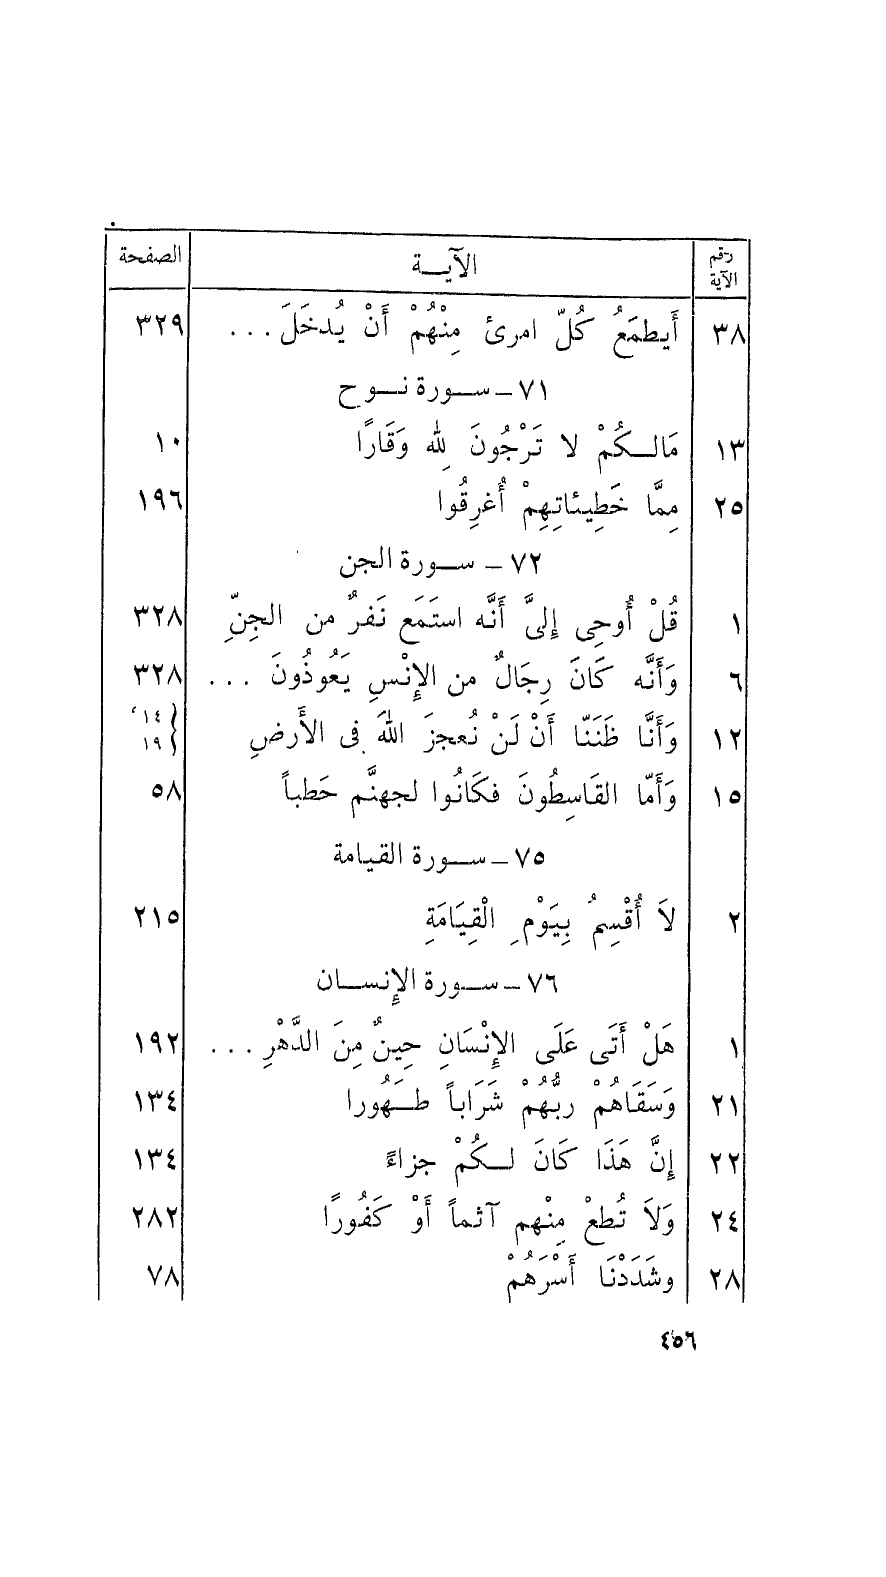 رقم الآية الآيــة الصفحة
٣٨ أَيطمَعُ كُلّ امرئ مِنْهُمْ أَنْ يُدخَلَ ... ٣٢٩
٧١ – ســورة نــوح
١٣ مَالــكُمْ لا تَرْجُونَ لِلّٰه وَقَارًا ١٠
٢٥ مِمَّا خَطِيئاتِهِمْ أُغرِقُوا ١٩٦
٧٢ – ســورة الجن
١ قُلْ أُوحِى إِلىَّ أَنَّه استَمَع نَفرٌ من الجِنّ ٣٢٨
٦ وَأَنَّه كَانَ رِجَالٌ من الإِنْسِ يَعُوذُونَ ... ٣٢٨
١٢ وَأَنَّا ظَنَنّا أَنْ لَنْ نُعجزَ اللّٰهَ فى الأَرضِ { ١٤ ، ١٩ }
١٥ وَأَمّا القَاسِطُونَ فكَانُوا لجهنَّم حَطباً ٥٨
٧٥ – ســورة القيامة
٢ لاَ أُقْسِمُ بِيَوْمِ الْقِيَامَةِ ٢١٥
٧٦ – ســورة الإِنســان
١ هَلْ أَتَى عَلَى الإِنْسَانِ حِينٌ مِنَ الدَّهْرِ ... ١٩٢
٢١ وَسَقَاهُمْ ربُّهُمْ شَرَاباً طــهُورا ١٣٤
٢٢ إِنَّ هَذَا كَانَ لــكُمْ جزاءً ١٣٤
٢٤ وَلاَ تُطعْ مِنْهم آثماً أَوْ كَفُورًا ٢٨٢
٢٨ وشَدَدْنَا أَسْرَهُمْ ٧٨
٤٥٦